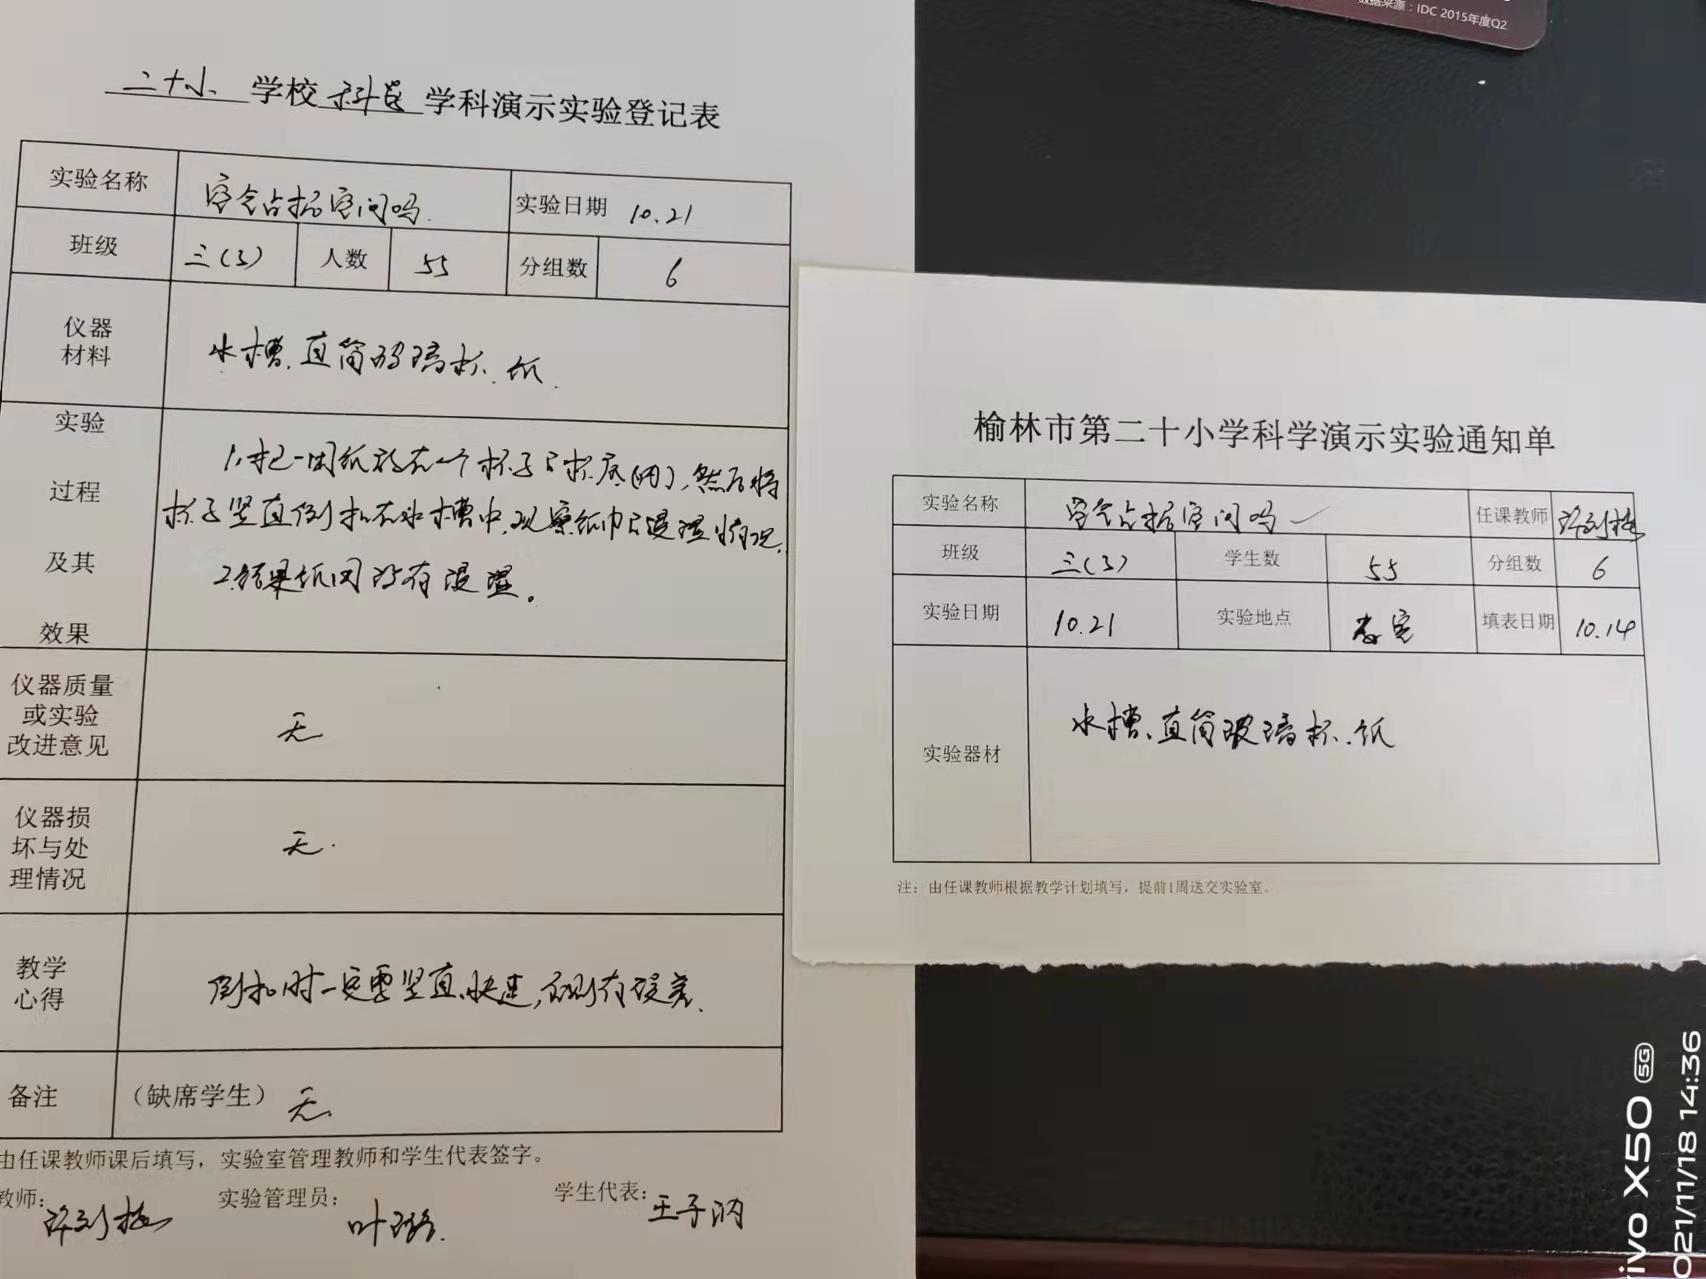 数据来源：IDC 2015年度Q2
二十小 学校 科学 学科演示实验登记表
实验名称 空气占据空间吗 实验日期 10.21
班级 三(3) 人数 55 分组数 6
仪器材料 水槽、直筒玻璃杯、纸
实验过程及其效果
1、把一团纸放在一个杯子的杯底(内)，然后将
杯子竖直倒扣在水槽中，观察纸巾的浸湿情况。
2.结果纸团没有浸湿。
仪器质量或实验改进意见 无
仪器损坏与处理情况 无.
教学心得 倒扣时一定要竖直、快速，否则有误差.
备注 (缺席学生) 无.
由任课教师课后填写，实验室管理教师和学生代表签字。
教师: 实验管理员: 学生代表:
榆林市第二十小学科学演示实验通知单
实验名称 空气占据空间吗 任课教师
班级 三(3) 学生数 55 分组数 6
实验日期 10.21 实验地点 教室 填表日期 10.14
实验器材 水槽、直筒玻璃杯、纸
注：由任课教师根据教学计划填写，提前1周送交实验室。
ivo X50 5G
021/11/18 14:36